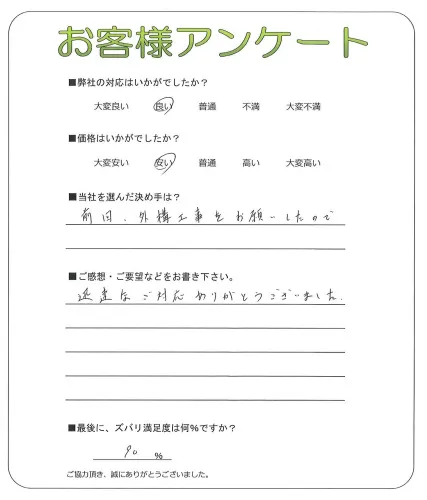 お客様アンケート
■弊社の対応はいかがでしたか？
大変良い 良い 普通 不満 大変不満
■価格はいかがでしたか？
大変安い 安い 普通 高い 大変高い
■当社を選んだ決め手は？
前回、外構工事をお願いしたので
■ご感想・ご要望などをお書き下さい。
迅速なご対応ありがとうございました。
■最後に、ズバリ満足度は何%ですか？
90 %
ご協力頂き、誠にありがとうございました。